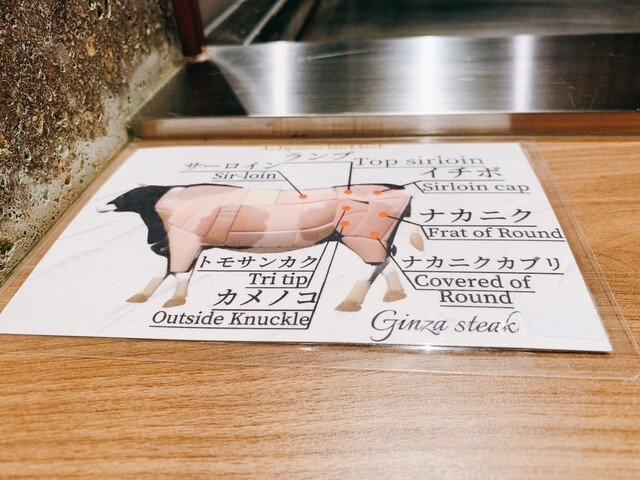 ランプ
Top sirloin
サーロイン
Sir-loin
イチボ
Sirloin cap
ナカニク
Frat of Round
トモサンカク
Tri tip
ナカニクカブリ
Covered of
Round
カメノコ
Outside Knuckle
Ginza steak